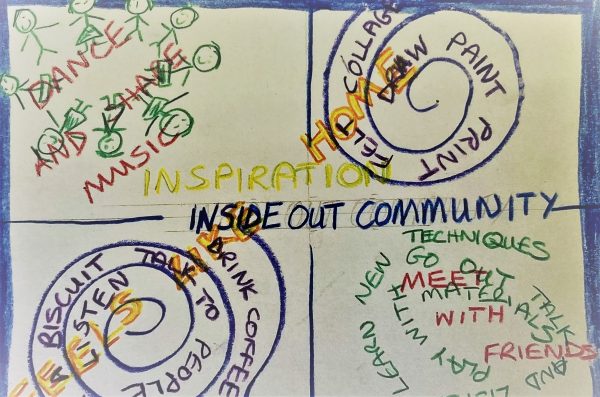 DANCE
AND SHARE
MUSIC
DRAW PAINT PRINT FELT COLLAGE
INSPIRATION
INSIDE OUT COMMUNITY
FEELS LIKE HOME
LISTEN TALK TO PEOPLE
A BISCUIT
DRINK COFFEE
LEARN NEW TECHNIQUES
PLAY WITH MATERIALS
GO OUT
TALK AND
MEET
WITH
FRIENDS